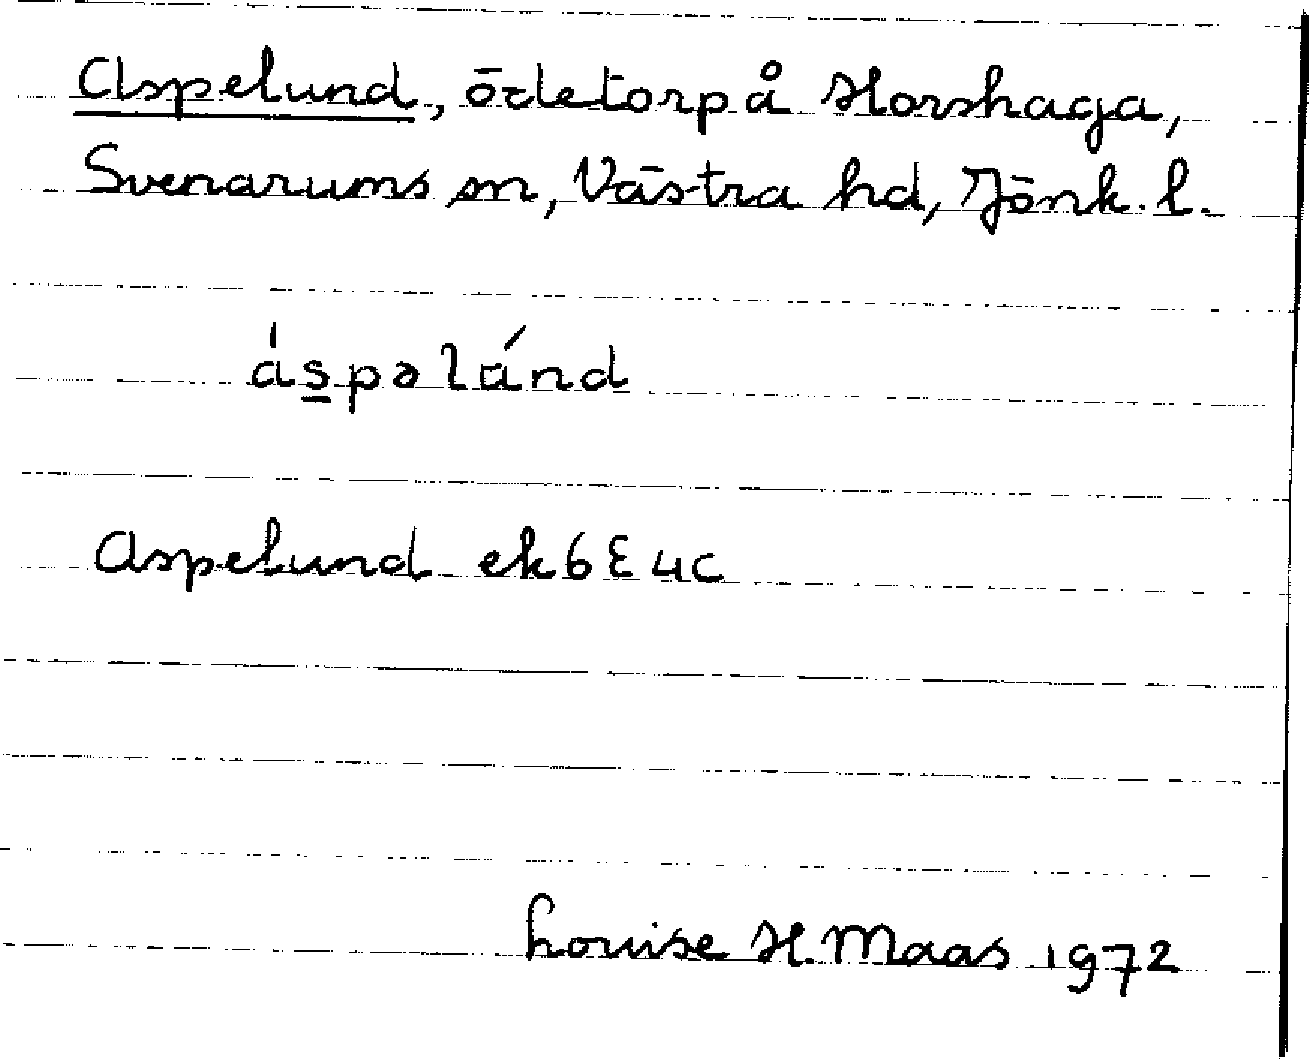 Aspelund, ödetorp å Horshaga,
Svenarums sn, Västra hd, Jönk. l.
a̍s̲pəlánd
Aspelund ek 6 E 4c
Louise H. Maas 1972